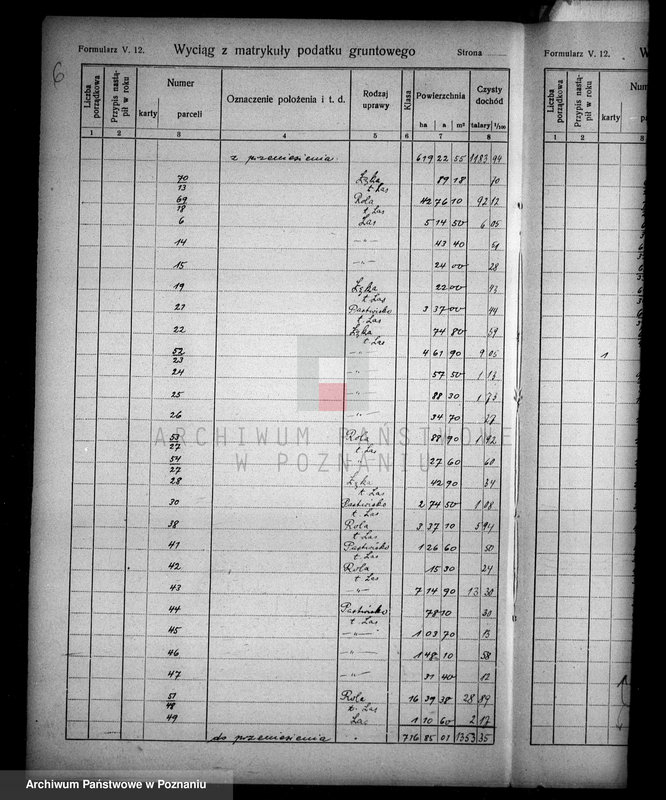 6
Formularz V. 12. Wyciąg z matrykuły podatku gruntowego Strona
Liczba porządkowa Przypis nastąpił w roku Numer karty parceli Oznaczenie położenia i t. d. Rodzaj uprawy Klasa Powierzchnia ha a m² Czysty dochód talary ¹/₁₀₀
1 2 3 4 5 6 7 8
z przeniesienia 619 22 55 1183 94
70/13 Łąka t. Las 89 18 70
69/18 Rola t. Las 42 76 10 92 12
6 Las 5 14 50 6 05
14 —"— 43 40 51
15 —"— 24 00 28
19 Łąka t. Las 22 00 93
21 Pastwisko t. Las 3 37 00 44
22 Łąka t. Las 74 80 59
52/23 —"— 4 61 90 9 05
24 —"— 57 50 1 13
25 —"— 88 30 1 73
26 —"— 34 70 27
53/27 Rola t. Las 88 90 1 92
54/27 —"— 27 60 60
28 Łąka t. Las 42 90 34
30 Pastwisko t. Las 2 74 50 1 08
38 Rola t. Las 3 37 10 5 94
41 Pastwisko t. Las 1 26 60 50
42 Rola t. Las 15 30 24
43 —"— 7 14 90 13 30
44 Pastwisko t. Las 78 10 30
45 —"— 1 03 70 13
46 —"— 1 48 10 58
47 —"— 31 40 12
51/48 Rola t. Las 16 39 38 28 89
49 Las 1 10 60 2 17
do przeniesienia 716 85 01 1353 35
Formularz V. 12.
Liczba porządkowa Przypis nastąpił w roku karty
1 2
1
ARCHIWUM PAŃSTWOWE
W POZNANIU
Archiwum Państwowe w Poznaniu